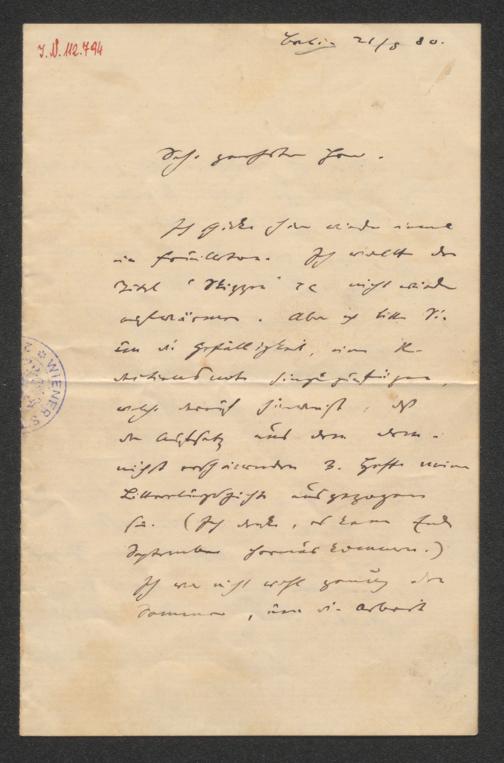 J.N. 112.794
Berlin 21/8 80.
Sehr geehrter Herr.
Ich schicke Ihnen wieder einmal
ein Feuilleton. Ich wollte den
Titel "Skizzen" nicht wieder
aufwärmen. Aber ich bitte Sie
um die Gefälligkeit, eine Re-
daktionsnote hinzuzufügen,
welche darauf hinweist, daß
der Aufsatz aus dem dem-
nächst erscheinenden 3. Hefte meiner
Litteraturgeschichte ausgezogen
sei. (Ich denke, es kann Ende
September herauskommen.)
Ich war nicht wohl genug den
Sommer, um die Arbeit
WIENER